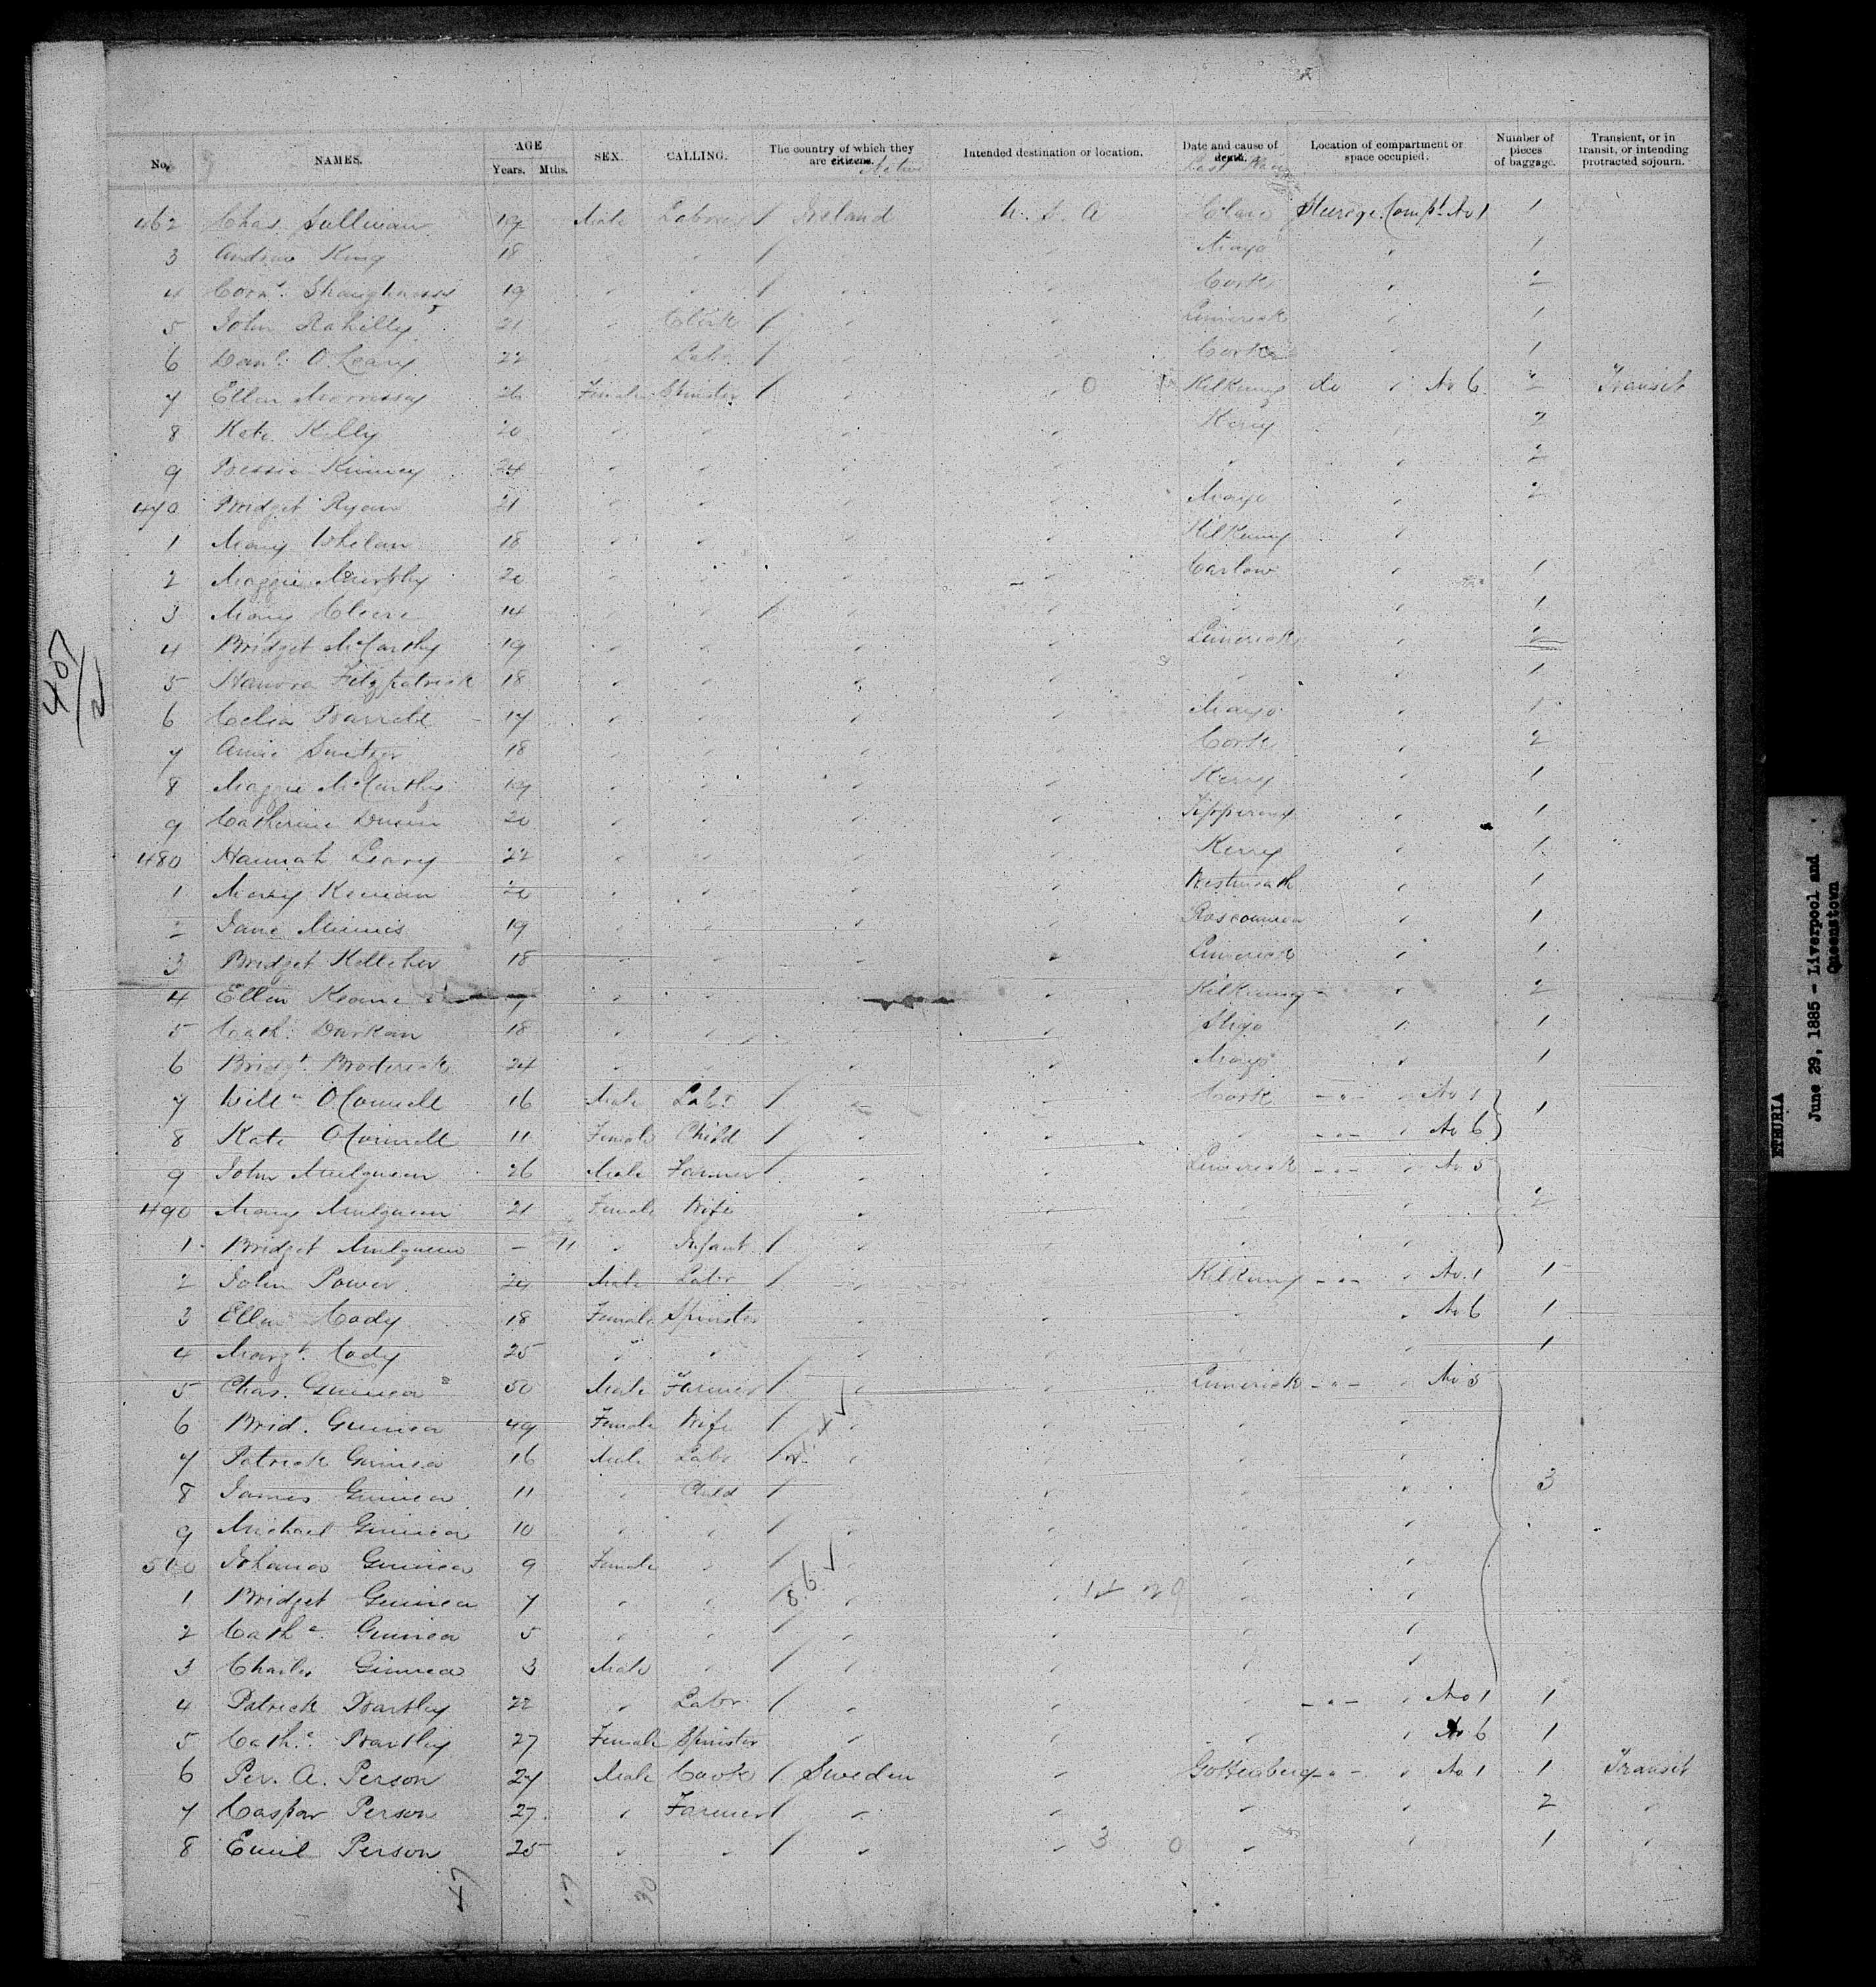 No. NAMES. AGE Years. Mths. SEX. CALLING. The country of which they are citizens. Native Intended destination or location. Date and cause of death. Last Location of compartment or space occupied. Number of pieces of baggage. Transient, or in transit, or intending protracted sojourn.
462 Chas. Sullivan 19 Male Laborer / Ireland U. S. A Clare Steerage Compt. No 1 1
3 Andrew King 18 " " / " " Mayo " 1
4 Corns. Shaughnessy 19 " " / " " Cork " 2
5 John Rahilly 21 " Clerk / " " Limerick " 1
6 Danl. O'Leary 22 Labr / " " Cork " 1
7 Ellen Morrissey 26 Female Spinster / " " 0 Kilkenny do " No 6 2 Transit
8 Kate Kelly 20 " " " " Kerry " 2
9 Bessie Kinney 24 " " " " " " 2
470 Bridget Ryan 21 " " " " Mayo " 2
1 Mary Whelan 18 " " " " Kilkenny "
2 Maggie Murphy 20 " " " " Carlow " 1
3 Mary Cleere 14 " / " " " " 1
4 Bridget McCarthy 19 " " " " Limerick " 2
5 Hanora Fitzpatrick 18 " " " " " " 1
6 Celia Barrett 17 " " " " Mayo " 1
7 Annie Switzer 18 " " " " Cork " 2
8 Maggie McCarthy 19 " " " " Kerry " 1
9 Catherine 20 " " " " Tipperary " 1
480 Hannah Leary 22 " " " " Kerry " 1
1 Mary Keenan 20 " " " " Westmeath " 1
2 Jane 19 " " " " Roscommon " 1
3 Bridget Kelleher 18 " " " " Limerick " 1
4 Ellen Keane " " " Kilkenny " 2
5 Cath. Durkan 18 " " " " Sligo " 1
6 Bridgt. Broderick 24 " " " " Mayo " 1
7 Willm O'Connell 16 Male Labr / " " Cork - " - " No 1 1
8 Kate O'Connell 11 Female Child / " " " - " - " No 6
9 John Mulqueen 26 Male Farmer / " " Limerick - " - " No 5
490 Mary Mulqueen 21 Female Wife " " " " 2
1 Bridget Mulqueen - 11 " Infant / " " " "
2 John Power 24 Male Labr / " Kilkenny - " - " No 1 1
3 Ellen Cody 18 Female Spinster " " " " No 6 1
4 Margt. Cody 25 " " " " " " 1
5 Chas. Guinea 50 Male Farmer / " " Limerick - " - " No 5
6 Brid. Guinea 49 Female Wife / " " " "
7 Patrick Guinea 16 Male Labr / " " " "
8 James Guinea 11 " Child / " " " 3
9 Michael Guinea 10 " " / " " " "
500 Johanna Guinea 9 Female " / " " "
1 Bridget Guinea 7 " " / " " " "
2 Cathe. Guinea 5 " " / " " " "
3 Charles Guinea 3 Male " / " " " "
4 Patrick Bartley 22 " Labr / " " " - " - " No 1 1
5 Cathe. Bartley 27 Female Spinster " " " " No 6 1
6 Per. A. Person 27 Male Cook / Sweden " Gottenberg - " - " No 1 1 Transit
7 Caspar Person 27 " Farmer / " " " " 2 "
8 Emil Person 25 " " / " " 3 0 " " 1 "
47 17 30
407
ETRURIA
June 29, 1885 - Liverpool and
Queenstown